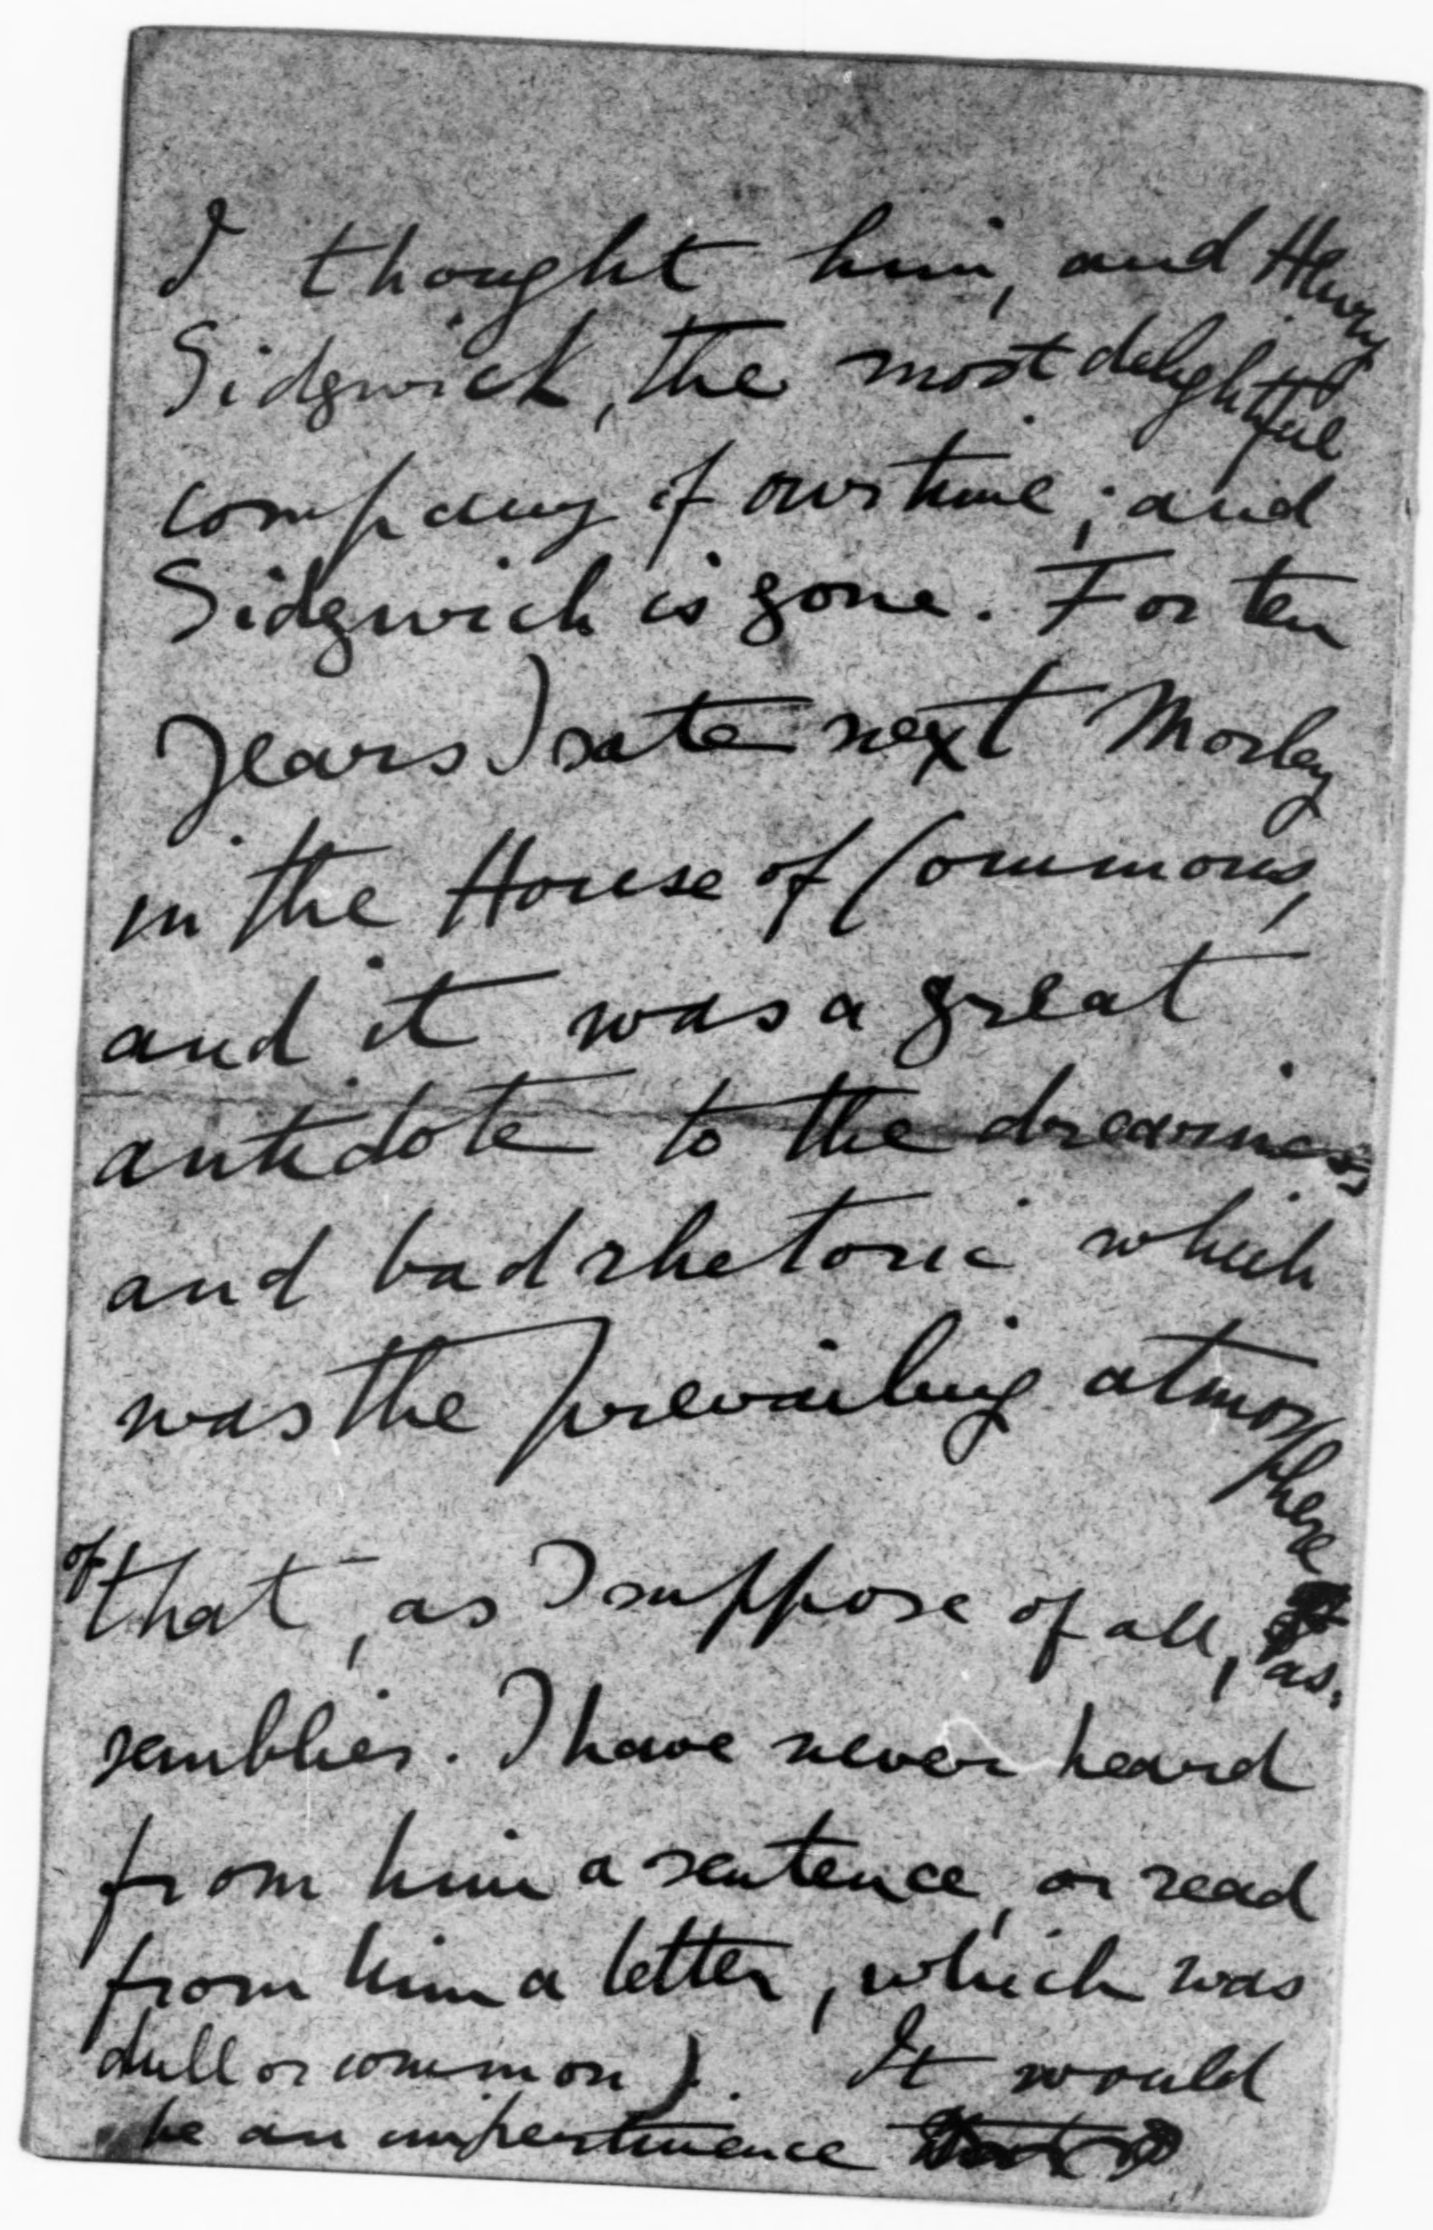 I thought him, and Henry
Sidgwick, the most delightful
company of our time; and
Sidgwick is gone. For ten
years I sate next Morley
in the House of Commons,
and it was a great
antidote to the dreariness
and bad rhetoric which
was the prevailing atmosphere
of that, as I suppose of all, as-
semblies. I have never heard
from him a sentence, or read
from him a letter, which was
dull or common). It would
be an impertinence